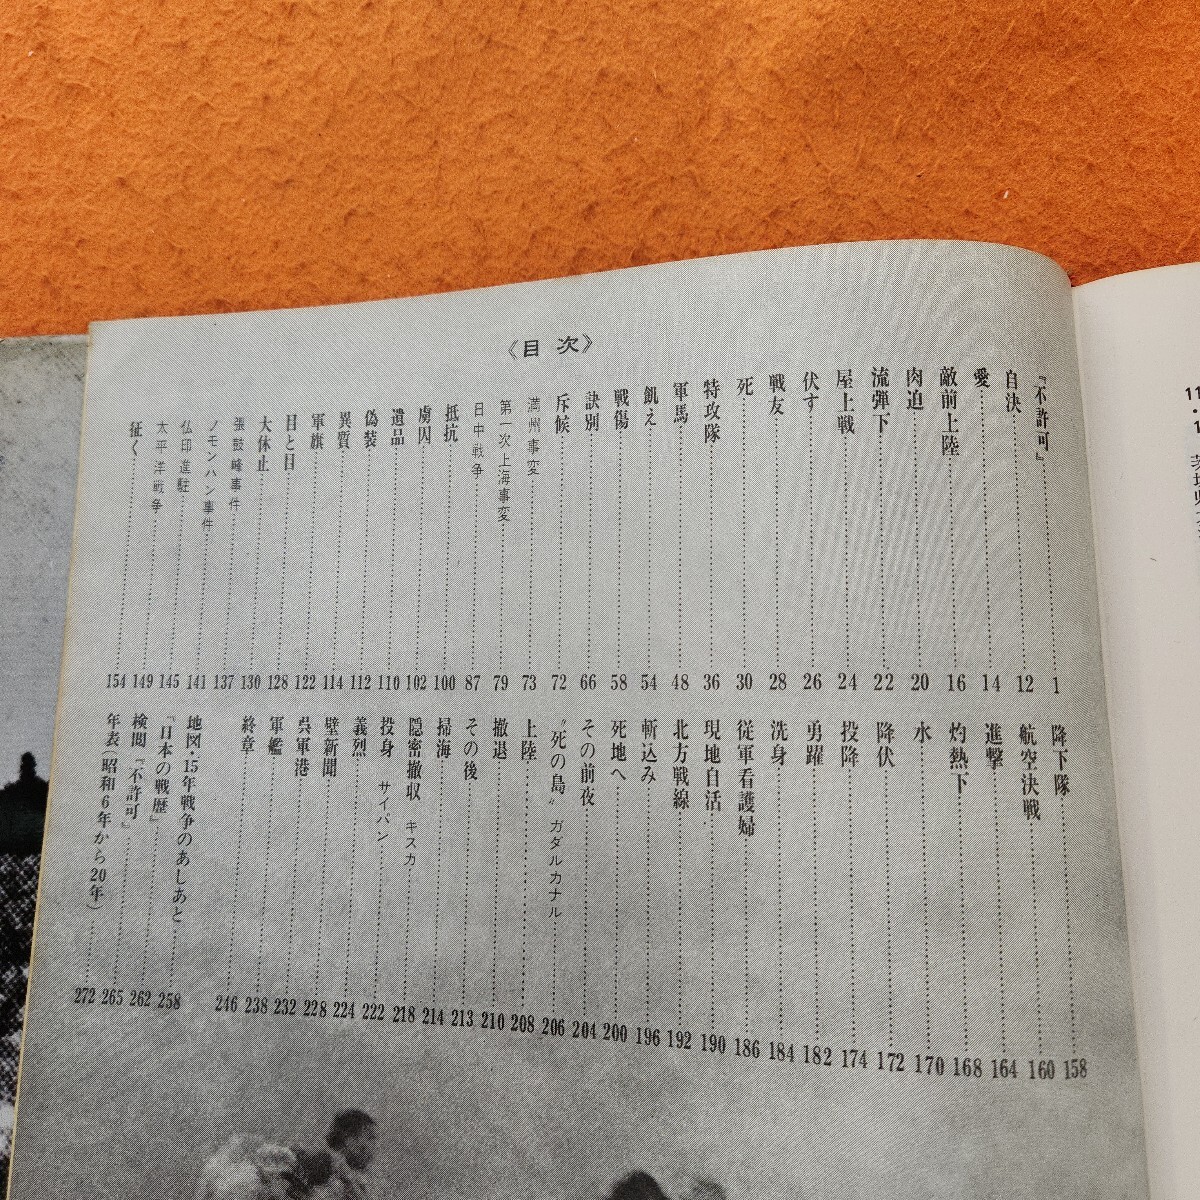 《目次》
『不許可』……1
自決……12
愛……14
敵前上陸……16
肉迫……20
流弾下……22
屋上戦……24
伏す……26
戦友……28
死……30
特攻隊……36
軍馬……48
飢え……54
戦傷……58
訣別……66
斥候……72
満州事変……73
第一次上海事変……79
日中戦争……87
抵抗……100
虜囚……102
遺品……110
偽装……112
異質……114
軍旗……122
目と目……128
大休止……130
張鼓峰事件……137
ノモンハン事件……141
仏印進駐……145
太平洋戦争……149
征く……154
降下隊……158
航空決戦……160
進撃……164
灼熱下……168
水……170
降伏……172
投降……174
勇躍……182
洗身……184
従軍看護婦……186
現地自活……190
北方戦線……192
斬込み……196
死地へ……200
その前夜……204
“死の島” ガダルカナル……206
上陸……208
撤退……210
その後……213
掃海……214
隠密撤収 キスカ……218
投身 サイパン……222
義烈……224
壁新聞……228
呉軍港……232
軍艦……238
終章……246
地図・15年戦争のあしあと……258
『日本の戦歴』……262
検閲『不許可』……265
年表（昭和6年から20年）……272